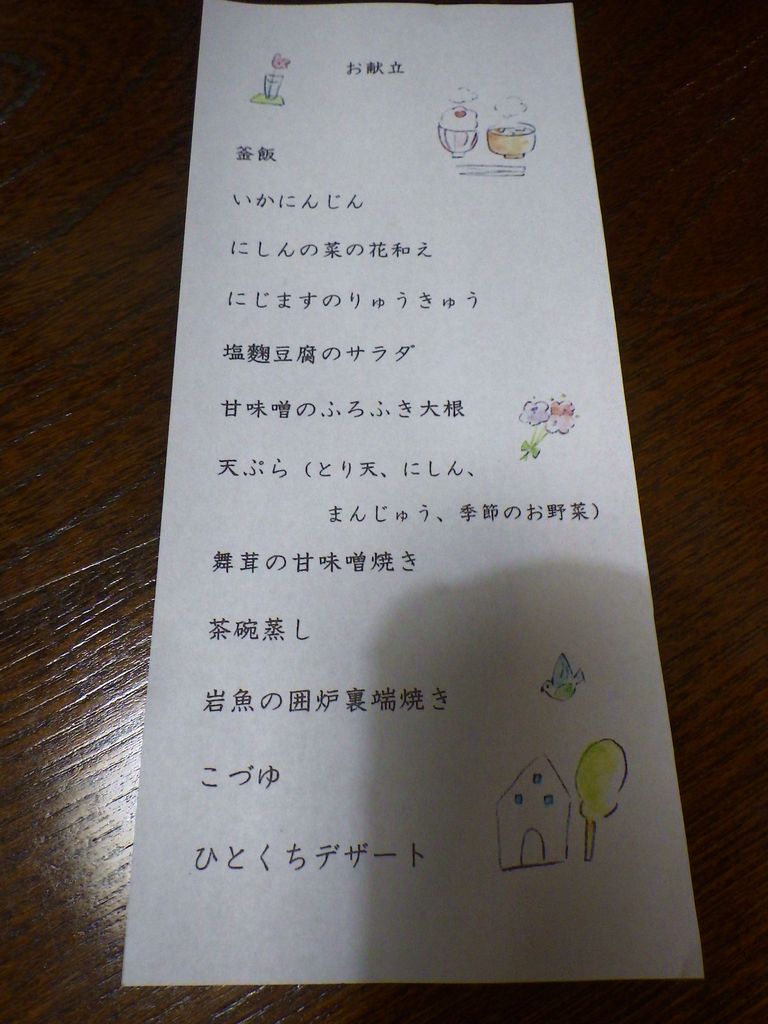 お献立
釜飯
いかにんじん
にしんの菜の花和え
にじますのりゅうきゅう
塩麴豆腐のサラダ
甘味噌のふろふき大根
天ぷら（とり天、にしん、
まんじゅう、季節のお野菜）
舞茸の甘味噌焼き
茶碗蒸し
岩魚の囲炉裏端焼き
こづゆ
ひとくちデザート